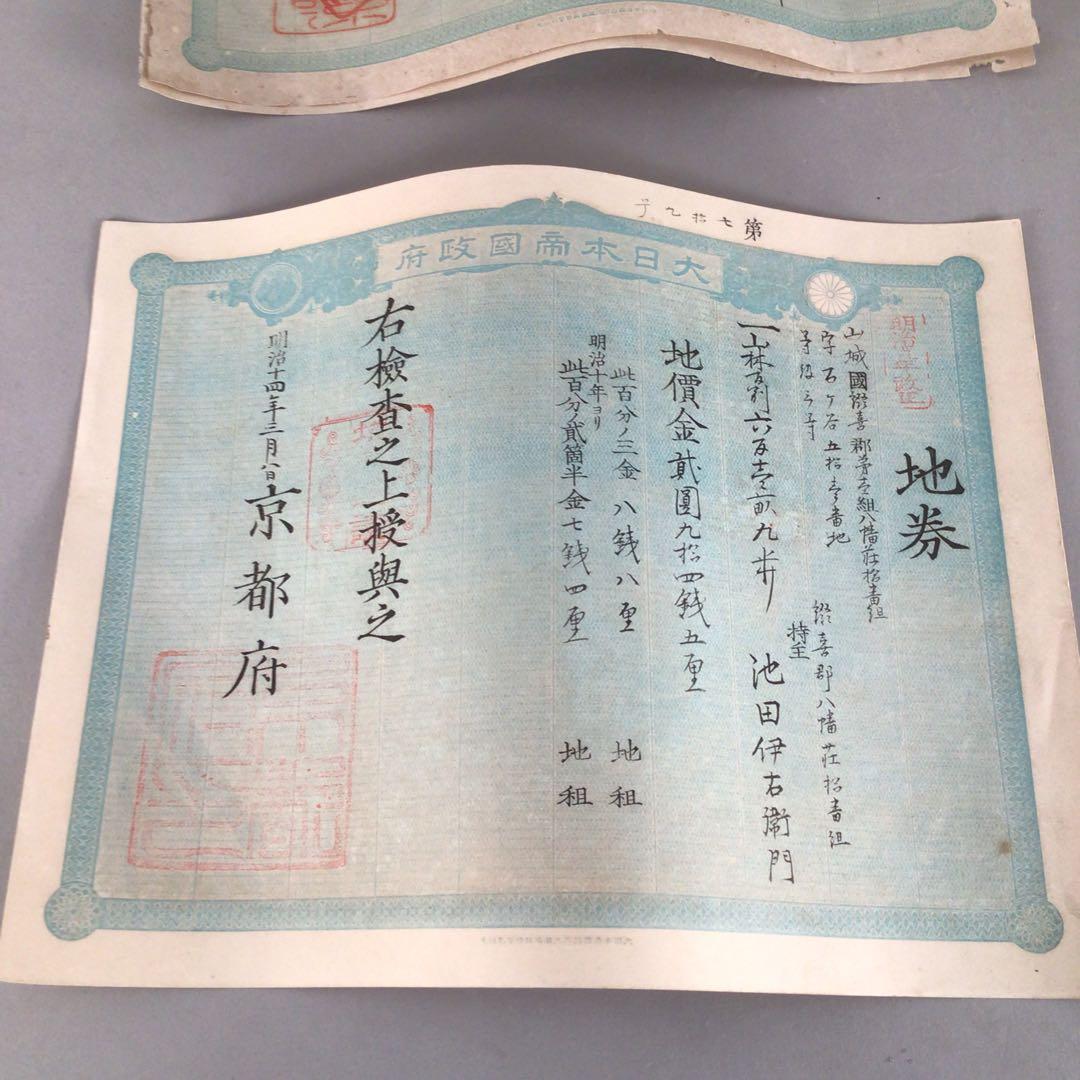 第七拾九号
大日本帝國政府
地券
山城國綴喜郡第壱組八幡荘拾番組
字石ヶ谷五拾壱番地
等級三等
綴喜郡八幡荘拾番組
持主 池田伊右衛門
一山林反別六反壱畝九歩
地價金貳圓九拾四銭五厘
此百分ノ三金八銭八厘 地租
明治十年ヨリ
此百分ノ貳箇半金七銭四厘 地租
右檢査之上授與之
明治十四年三月八日
京都府